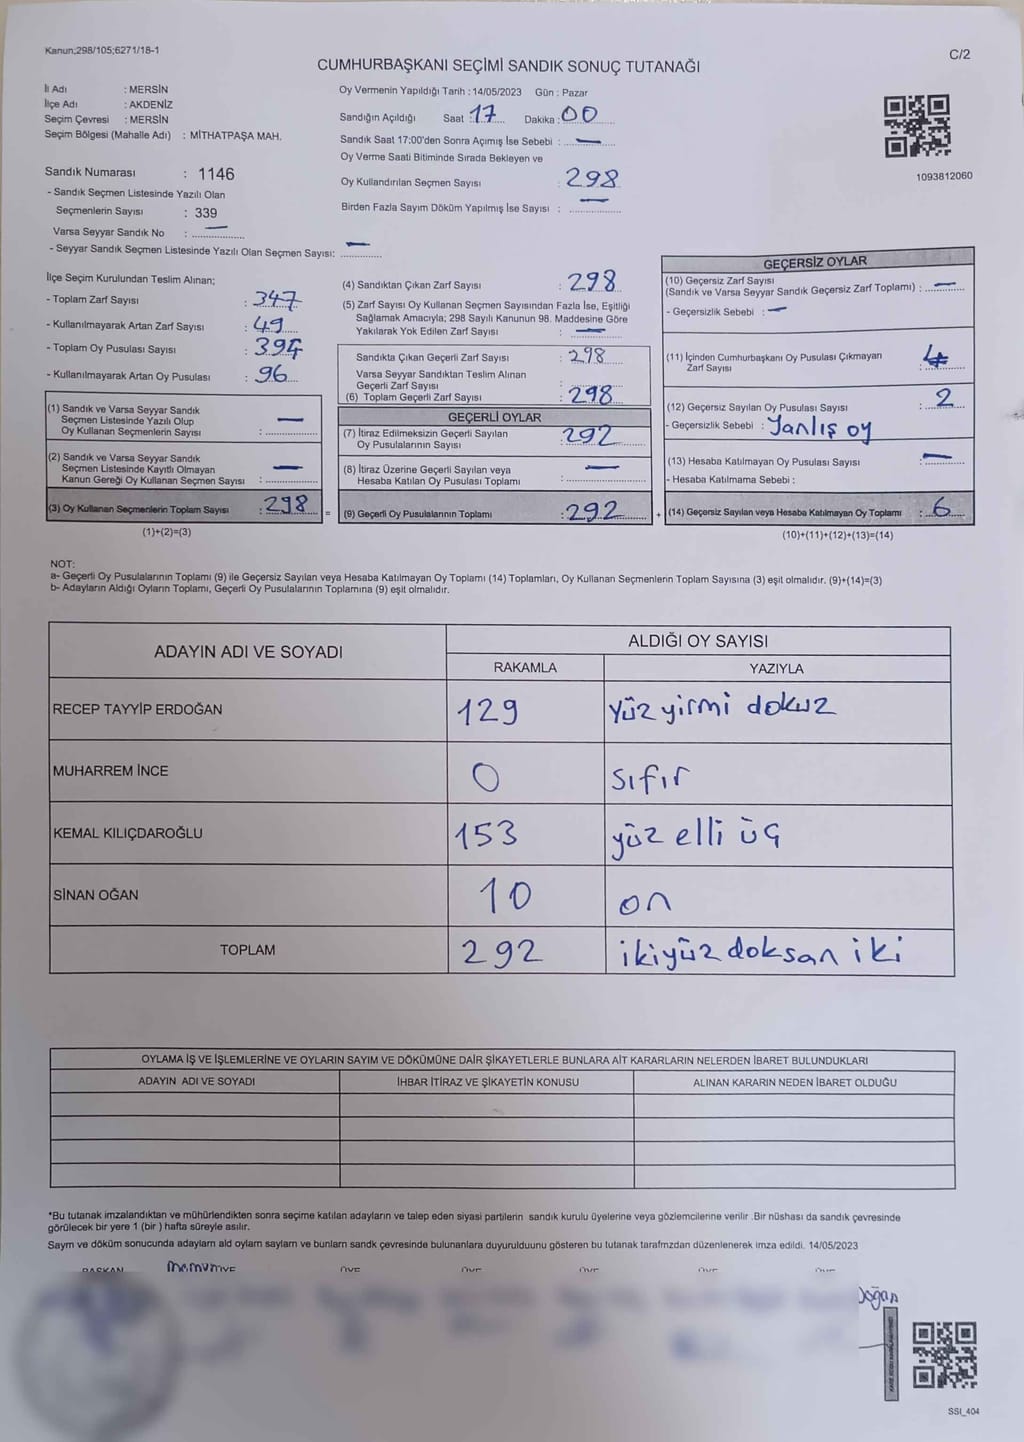 Kanun;298/105;6271/18-1
C/2
CUMHURBAŞKANI SEÇİMİ SANDIK SONUÇ TUTANAĞI
İl Adı : MERSİN
İlçe Adı : AKDENİZ
Seçim Çevresi : MERSİN
Seçim Bölgesi (Mahalle Adı) : MİTHATPAŞA MAH.
Sandık Numarası : 1146
- Sandık Seçmen Listesinde Yazılı Olan
Seçmenlerin Sayısı : 339
Varsa Seyyar Sandık No : —
- Seyyar Sandık Seçmen Listesinde Yazılı Olan Seçmen Sayısı: —
Oy Vermenin Yapıldığı Tarih : 14/05/2023 Gün : Pazar
Sandığın Açıldığı Saat : 17 Dakika : 00
Sandık Saat 17:00'den Sonra Açımış İse Sebebi : —
Oy Verme Saati Bitiminde Sırada Bekleyen ve
Oy Kullandırılan Seçmen Sayısı : 298
Birden Fazla Sayım Döküm Yapılmış İse Sayısı : —
1093812060
İlçe Seçim Kurulundan Teslim Alınan;
- Toplam Zarf Sayısı : 347
- Kullanılmayarak Artan Zarf Sayısı : 49
- Toplam Oy Pusulası Sayısı : 394
- Kullanılmayarak Artan Oy Pusulası : 96
(1) Sandık ve Varsa Seyyar Sandık
Seçmen Listesinde Yazılı Olup
Oy Kullanan Seçmenlerin Sayısı : —
(2) Sandık ve Varsa Seyyar Sandık
Seçmen Listesinde Kayıtlı Olmayan
Kanun Gereği Oy Kullanan Seçmen Sayısı : —
(3) Oy Kullanan Seçmenlerin Toplam Sayısı : 298
(1)+(2)=(3)
=
(4) Sandıktan Çıkan Zarf Sayısı : 298
(5) Zarf Sayısı Oy Kullanan Seçmen Sayısından Fazla İse, Eşitliği
Sağlamak Amacıyla; 298 Sayılı Kanunun 98. Maddesine Göre
Yakılarak Yok Edilen Zarf Sayısı : —
Sandıkta Çıkan Geçerli Zarf Sayısı : 298
Varsa Seyyar Sandıktan Teslim Alınan
Geçerli Zarf Sayısı
(6) Toplam Geçerli Zarf Sayısı : 298
GEÇERLİ OYLAR
(7) İtiraz Edilmeksizin Geçerli Sayılan
Oy Pusulalarının Sayısı : 292
(8) İtiraz Üzerine Geçerli Sayılan veya
Hesaba Katılan Oy Pusulası Toplamı : —
(9) Geçerli Oy Pusulalarının Toplamı : 292
+
GEÇERSİZ OYLAR
(10) Geçersiz Zarf Sayısı
(Sandık ve Varsa Seyyar Sandık Geçersiz Zarf Toplamı) : —
- Geçersizlik Sebebi : —
(11) İçinden Cumhurbaşkanı Oy Pusulası Çıkmayan
Zarf Sayısı : 4
(12) Geçersiz Sayılan Oy Pusulası Sayısı : 2
- Geçersizlik Sebebi : Yanlış oy
(13) Hesaba Katılmayan Oy Pusulası Sayısı : —
- Hesaba Katılmama Sebebi :
(14) Geçersiz Sayılan veya Hesaba Katılmayan Oy Toplamı : 6
(10)+(11)+(12)+(13)=(14)
NOT:
a- Geçerli Oy Pusulalarının Toplamı (9) ile Geçersiz Sayılan veya Hesaba Katılmayan Oy Toplamı (14) Toplamları, Oy Kullanan Seçmenlerin Toplam Sayısına (3) eşit olmalıdır. (9)+(14)=(3)
b- Adayların Aldığı Oyların Toplamı, Geçerli Oy Pusulalarının Toplamına (9) eşit olmalıdır.
ADAYIN ADI VE SOYADI ALDIĞI OY SAYISI
RAKAMLA YAZIYLA
RECEP TAYYİP ERDOĞAN 129 yüz yirmi dokuz
MUHARREM İNCE 0 sıfır
KEMAL KILIÇDAROĞLU 153 yüz elli üç
SİNAN OĞAN 10 on
TOPLAM 292 ikiyüz doksan iki
OYLAMA İŞ VE İŞLEMLERİNE VE OYLARIN SAYIM VE DÖKÜMÜNE DAİR ŞİKAYETLERLE BUNLARA AİT KARARLARIN NELERDEN İBARET BULUNDUKLARI
ADAYIN ADI VE SOYADI İHBAR İTİRAZ VE ŞİKAYETİN KONUSU ALINAN KARARIN NEDEN İBARET OLDUĞU
*Bu tutanak imzalandıktan ve mühürlendikten sonra seçime katılan adayların ve talep eden siyasi partilerin sandık kurulu üyelerine veya gözlemcilerine verilir .Bir nüshası da sandık çevresinde
görülecek bir yere 1 (bir ) hafta süreyle asılır.
Saym ve döküm sonucunda adaylarn ald oylarn saylarn ve bunlarn sandk çevresinde bulunanlara duyurulduunu gösteren bu tutanak tarafmzdan düzenlenerek imza edildi. 14/05/2023
BAŞKAN ÜYE ÜYE ÜYE ÜYE ÜYE
Doğan
SSI_404